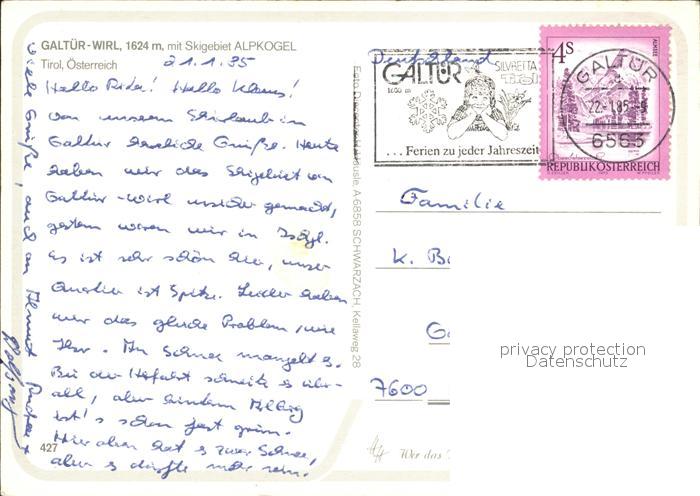 GALTÜR-WIRL, 1624 m, mit Skigebiet ALPKOGEL
Tirol, Österreich
21.1.85
Hallo Rida! Hallo Klaus!
von unserem Skiurlaub in
Galtür herzliche Grüße. Heute
haben wir das Skigebiet von
Galtür-Wirl unsicher gemacht,
gestern waren wir in Ischgl.
Es ist sehr schön hier, unser
Quartier ist Spitze. Leider haben
wir das gleiche Problem, wie
Ihr. An Schnee mangelt es.
Bei der Herfahrt schneite es über-
all, aber hinterm Arlberg
ist's schon fast grün.
Hier oben hat es zwar Schnee,
aber es dürfte mehr sein.
Viele Grüße, auch an Almut
427
Foto A-6858 SCHWARZACH, Kellaweg 28
Deutschland
GALTÜR
1600 m
SILVRETTA
TIROL
... Ferien zu jeder Jahreszeit
4 S
ALMSEE
REPUBLIK ÖSTERREICH
GALTÜR
22.-1.85-
6563
Familie
K. B
G
7600
Wer das
privacy protection
Datenschutz